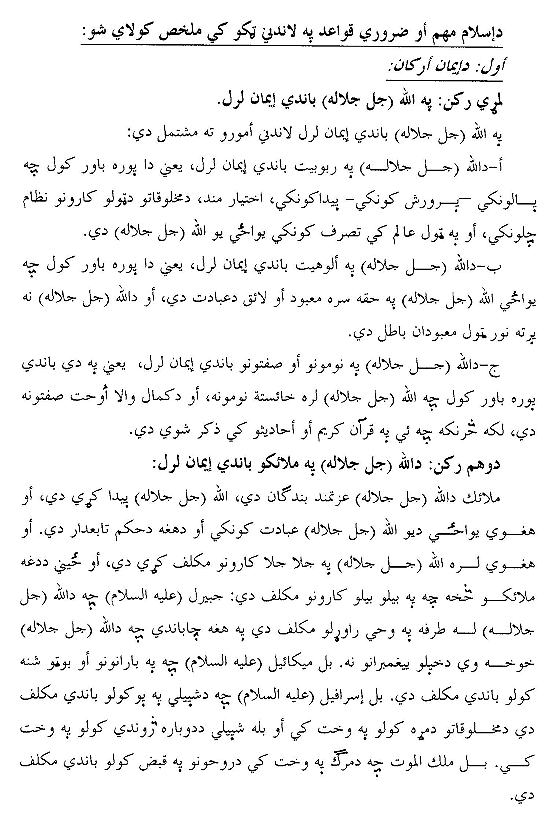 دإسلام مهم أو ضروري قواعد په لاندنۍ ټكو كي ملخص كولاي شو:
أول: دإيمان أركان:
لمړي ركن: په الله (جل جلاله) باندي إيمان لرل.
په الله (جل جلاله) باندي إيمان لرل لاندني أمورو ته مشتمل دي:
أ-دالله (جـــل جلالـــه) په ربوبيت باندي إيمان لرل، يعني دا پوره باور كول چه
پـالونكي –پـرورش كونكي- پيداكونكي، اختيار مند، دمخلوقاتو دټولو كارونو نظام
چلونكي، أو په ټول عالم كي تصرف كونكي يواځي يو الله (جل جلاله) دي.
ب-دالله (جـــل جلاله) په ألوهيت باندي إيمان لرل، يعني دا پوره باور كول چه
يواځي الله (جل جلاله) په حقه سره معبود أو لائق دعبادت دي، أو دالله (جل جلاله) نه
پرته نور ټول معبودان باطل دي.
ج-دالله (جـــل جلاله) په نومونو أو صفتونو باندي إيمان لرل، يعني په دي باندي
پوره باور كول چه الله (جل جلاله) لره خائستة نومونه، أو دكمال والا أوحت صفتونه
دي، لكه څرنكه چه ئي په قرآن كريم أو أحاديثو كي ذكر شوي دي.
دوهم ركن: دالله (جل جلاله) په ملائكو باندي إيمان لرل:
ملائك دالله (جل جلاله) عزتمند بندگان دي، الله (جل جلاله) پيدا كړي دي، أو
هغـوي يواځـي ديو الله (جل جلاله) عبادت كونكي أو دهغه دحكم تابعدار دي. أو
هغوي لـــره الله (جـــل جلاله) په جلا جلا كارونو مكلف كړي دي، أو ځيني ددغه
ملائكـــو څخه چه په بيلو بيلو كارونو مكلف دي: جبيرل (عليه السلام) چه دالله (جل
جلالـــه) لـــه طرفه په وحي راوړلو مكلف دي په هغه چاباندي چه دالله (جل جلاله)
خوخـــه وي دخپلو پيغمبرانو نه. بل ميكائيل (عليه السلام) چه په بارانونو أو بوټو شنه
كولو باندي مكلف دي. بل إسرافيل (عليه السلام) چه دشپيلي په پوكولو باندي مكلف
دي دمخـلوقاتو دمړه كولو په وخت كي أو بله شپيلي ددوباره ژوندي كولو په وخت
كـــي. بـــل ملك الموت چه دمرگ په وخت كي دروحونو په قبض كولو باندي مكلف
دي.